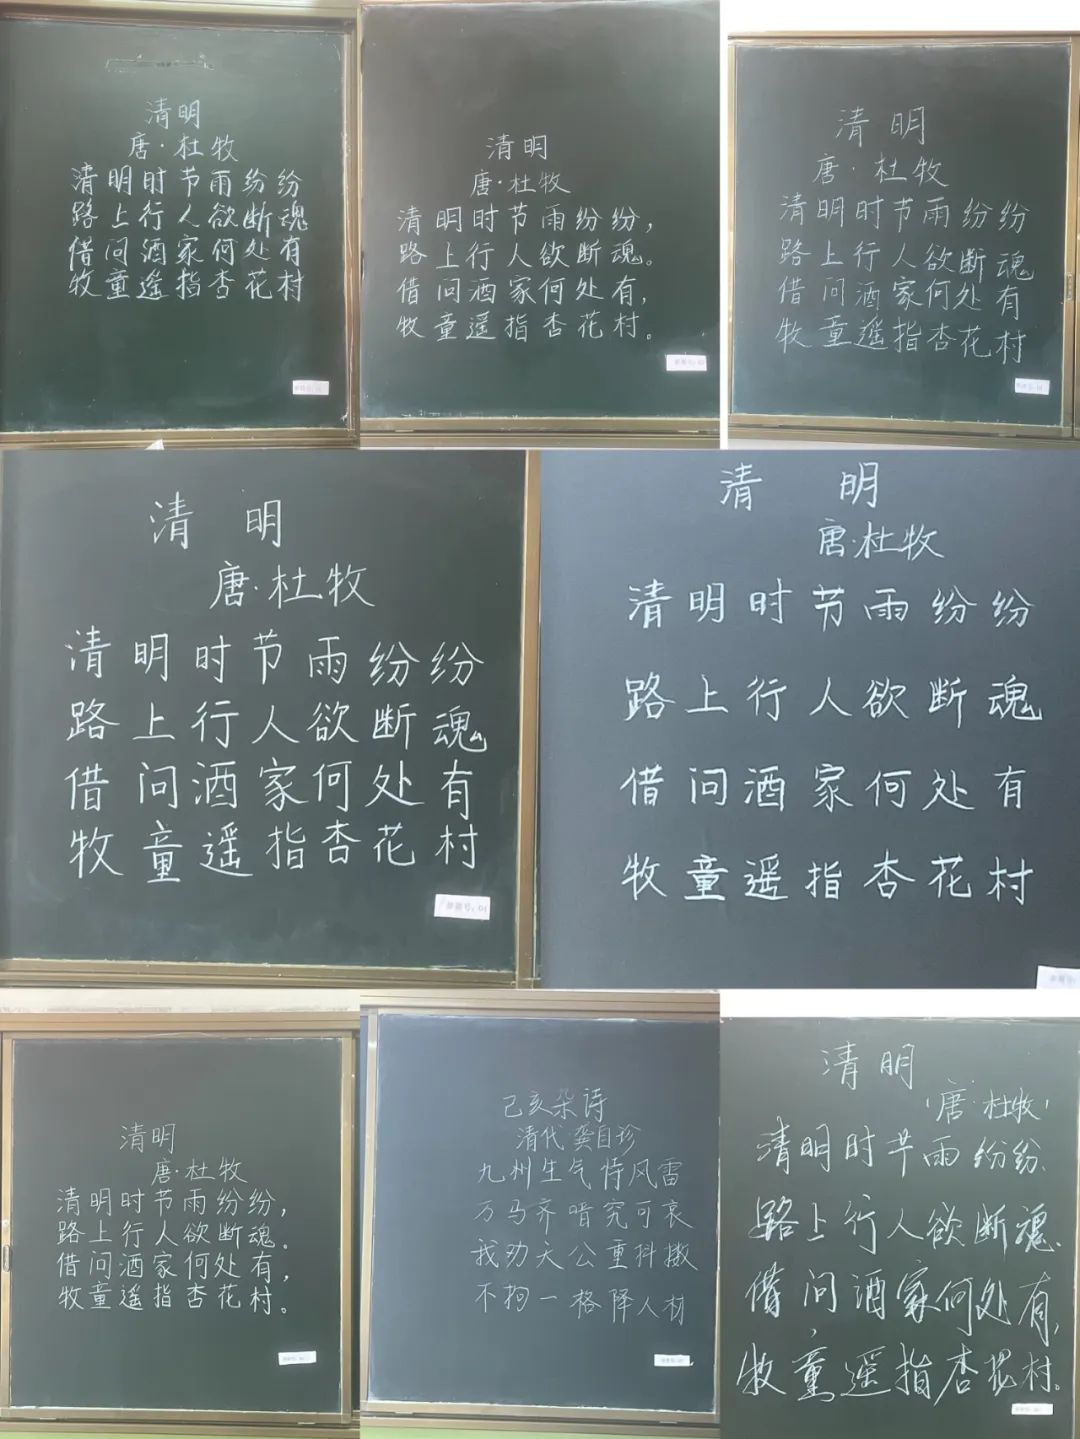 清明
唐·杜牧
清明时节雨纷纷
路上行人欲断魂
借问酒家何处有
牧童遥指杏花村
清明
唐·杜牧
清明时节雨纷纷，
路上行人欲断魂。
借问酒家何处有，
牧童遥指杏花村。
清明
唐·杜牧
清明时节雨纷纷
路上行人欲断魂
借问酒家何处有
牧童遥指杏花村
清明
唐·杜牧
清明时节雨纷纷
路上行人欲断魂
借问酒家何处有
牧童遥指杏花村
参赛号：04
清明
唐·杜牧
清明时节雨纷纷
路上行人欲断魂
借问酒家何处有
牧童遥指杏花村
清明
唐·杜牧
清明时节雨纷纷，
路上行人欲断魂。
借问酒家何处有，
牧童遥指杏花村。
己亥杂诗
清代·龚自珍
九州生气恃风雷
万马齐喑究可哀
我劝天公重抖擞
不拘一格降人材
清明
唐·杜牧
清明时节雨纷纷、
路上行人欲断魂、
借问酒家何处有，
牧童遥指杏花村。